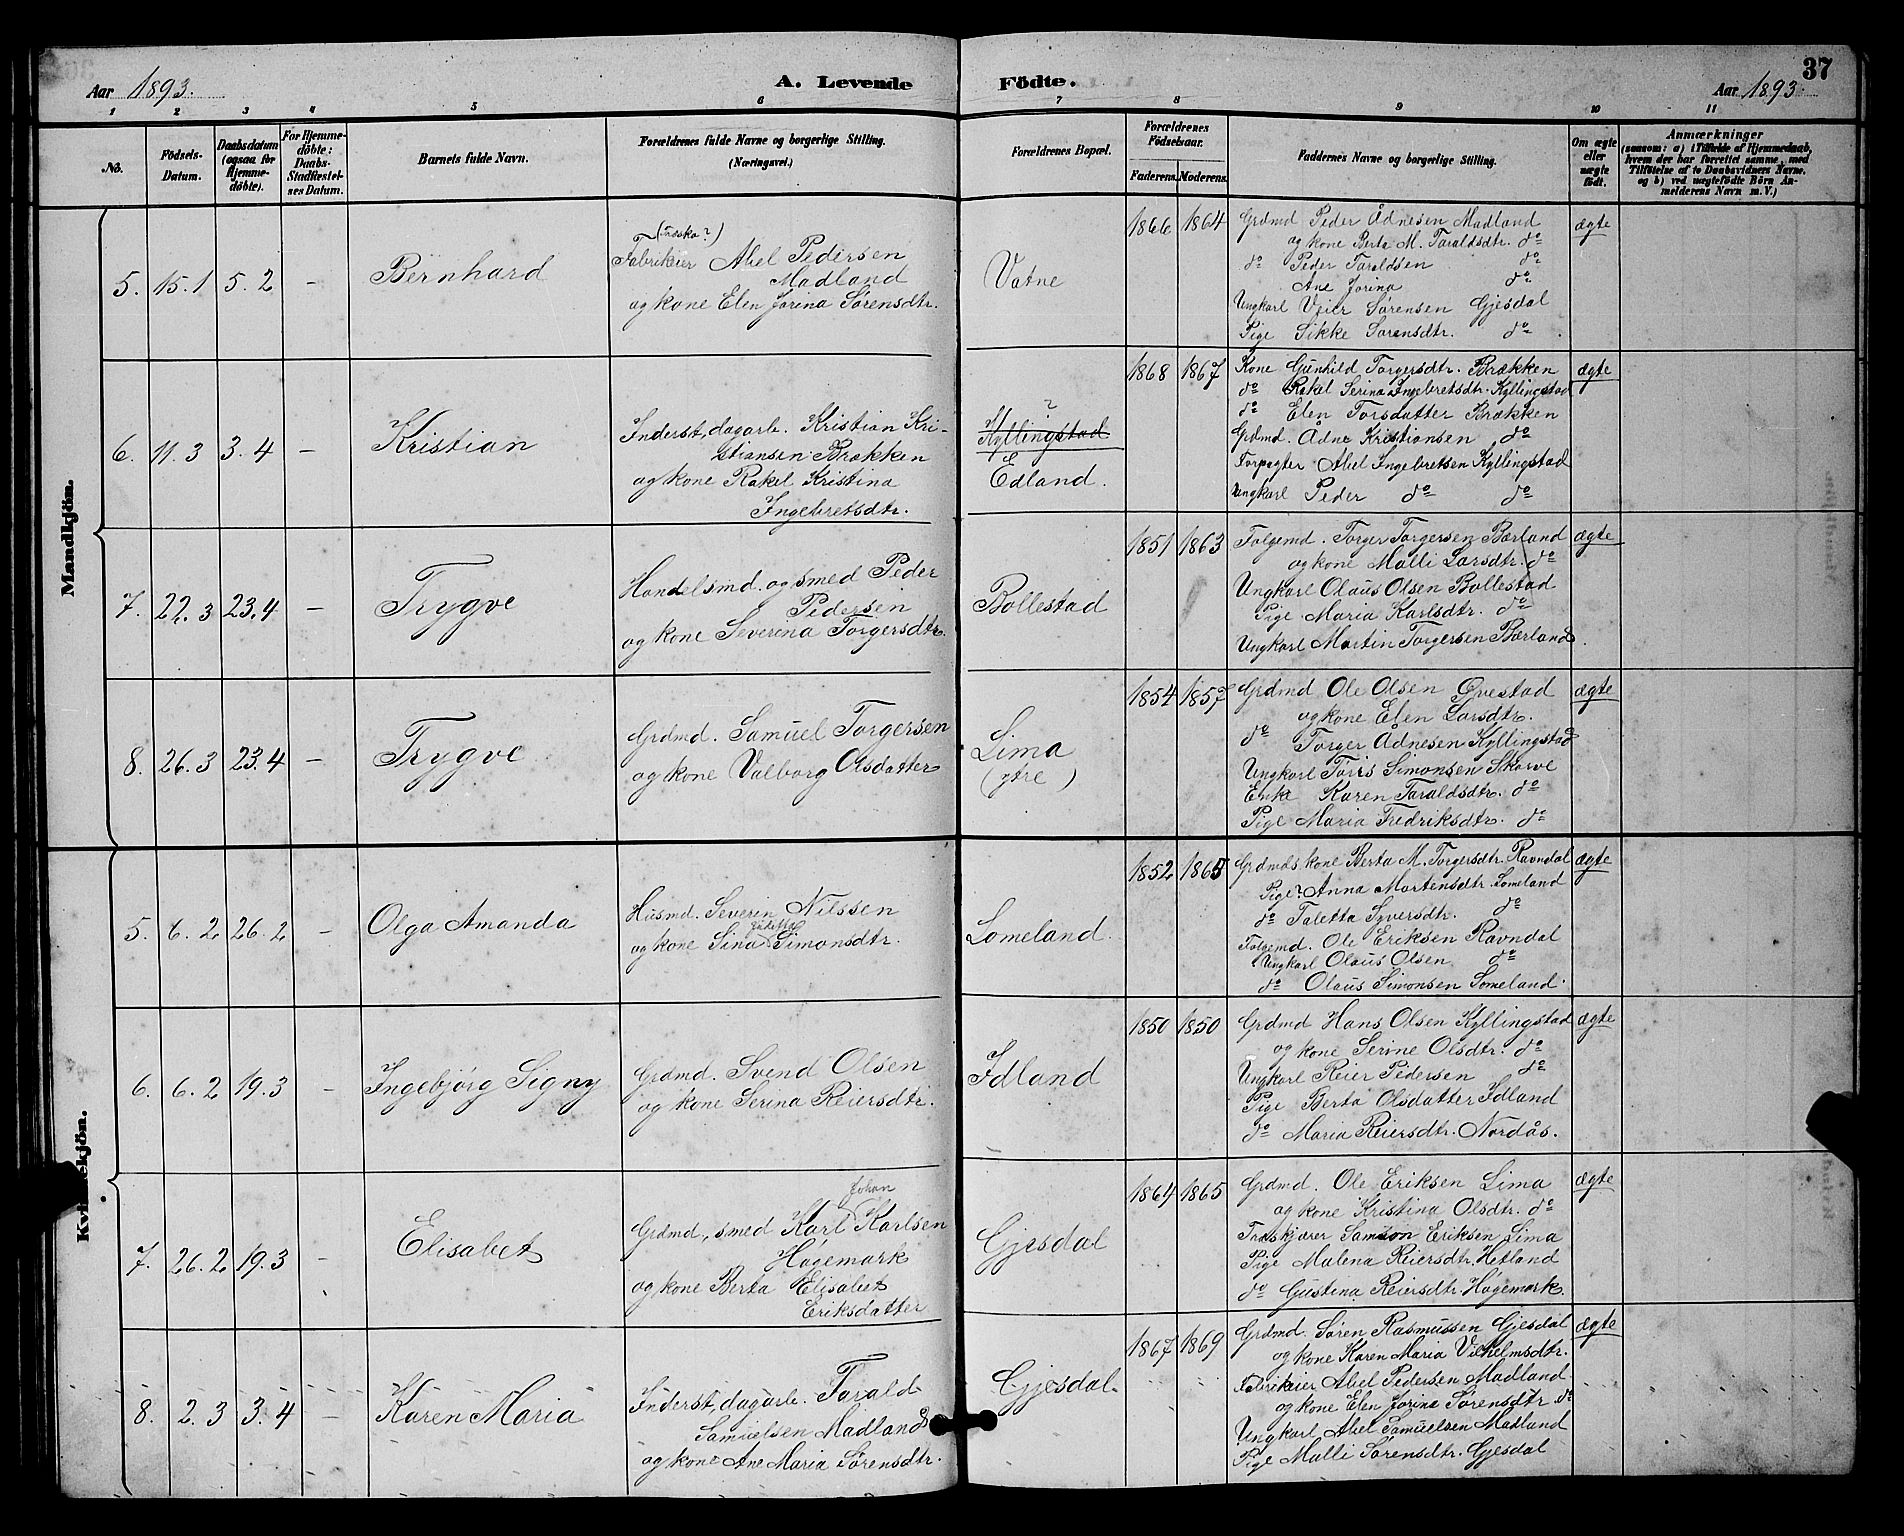 Aar 1893.
A. Levende Födte.
37
Aar 1893.
1 2 3 4 5 6 7 8 9 10 11
No.
Födsels-Datum.
Daabsdatum (ogsaa for Hjemme-döbte).
For Hjemme-döbte: Daabs-Stadfæstel-ses Datum.
Barnets fulde Navn.
Forældrenes fulde Navne og borgerlige Stilling. (Næringsvei.)
Forældrenes Bopæl.
Forældrenes Födselsaar.
Faderens. Moderens.
Faddernes Navne og borgerlige Stilling.
Om ægte eller uægte födt.
Anmærkninger
(saasom: a) i Tilfælde af Hjemmedaab, hvem der har forrettet samme, med Tilföielse af to Daabsvidners Navne, og b) ved uægtefödte Börn An-melderens Navn m. V.)
Mandkjön.
5. 15.1 5.2 – Bernhard
(Træsko?)
Fabrikeier Abel Pedersen
Madland
og kone Elen Jorina Sørensdtr.
Vatne
1866 1864
Grdmd Peder Ådnesen Madland
og kone Berta M. Taraldsdtr. do
do Peder Taraldsen do
Ane Jorina do
Ungkarl Veier Sørensen Gjesdal
Pige Sikke Sørensdtr. do
ægte
6. 11.3 3.4 – Kristian
Inderst, dagarb. Kristian Kri-
stiansen Brækken
og kone Rakel Kristina
Ingebretsdtr.
?
Kyllingstad
Edland.
1868 1867
Kone Gunhild Torgersdtr. Brækken
do Rakel Serina Ingebretsdtr. Kyllingstad
do Elen Torsdatter Brækken
Grdmd. Ådne Kristiansen do
Forpagter Abel Ingebretsen Kyllingstad
Ungkarl Peder do do
ægte
7. 22.3 23.4 – Trygve
Handelsmd. og smed Peder
Pedersen
og kone Severina Torgersdtr.
Bollestad
1851 1863
Følgemd. Torger Torgersen Børland
og kone Malli Larsdtr. do
Ungkarl Olaus Olsen Bollestad
Pige Maria Karlsdtr. do
Ungkarl Martin Torgersen Børland.
ægte
8. 26.3 23.4 – Trygve
Grdmd. Samuel Torgersen
og kone Valborg Olsdatter
Lima
(ytre)
1854 1857
Grdmd Ole Olsen Øvestad
og kone Elen Larsdtr.
do Torger Ådnesen Kyllingstad
Ungkarl Toris Simonsen Skarve
Enke Karen Taraldsdtr. do
Pige Maria Fredriksdtr. do
ægte
Kvindekjön.
5. 6.2 26.2 – Olga Amanda
Husmd. Severin Nilssen
og kone Sina Judetta Simonsdtr.
Lomeland.
1852 1865
Grdmds kone Berta M. Torgersdtr. Ravndal
Pige? Anna Martensdtr. Lomeland
do Taletta Syversdtr. do
Følgemd. Ole Eriksen Ravndal
Ungkarl Olaus Olsen do
do Olaus Simonsen Lomeland.
ægte
6. 6.2 19.3 – Ingebjørg Signy
Grdmd. Svend Olsen
og kone Serina Reiersdtr.
Idland
1850 1850
Grdmd Hans Olsen Kyllingstad
og kone Serine Olsdtr. do
Ungkarl Reier Pedersen do
Pige Berta Olsdatter Idland
do Maria Reiersdtr. Nordås.
ægte
7. 26.2 19.3 – Elisabet
Grdmd, smed Karl Johan Karlsen
Høgemark
og kone Berta Elisabet
Eriksdatter
Gjesdal
1864 1865
Grdmd. Ole Eriksen Lima
og kone Kristina Olsdtr. do
Træskjærer Samson Eriksen Lima
Pige Malena Reiersdtr. Hetland
do Gustina Reiersdtr. Høgemark.
ægte
8. 2.3 3.4 – Karen Maria
Inderst, dagarb. Tarald
Samuelsen Madland
og kone Ane Maria Sørensdtr.
Gjesdal.
1867 1869
Grdmd. Søren Rasmussen Gjesdal
og kone Karen Maria Vilhelmsdtr.
Fabrikeier Abel Pedersen Madland
og kone Elen Jorine Sørensdtr do
Ungkarl Abel Samuelsen Madland
Pige Malli Sørensdtr. Gjesdal
ægte